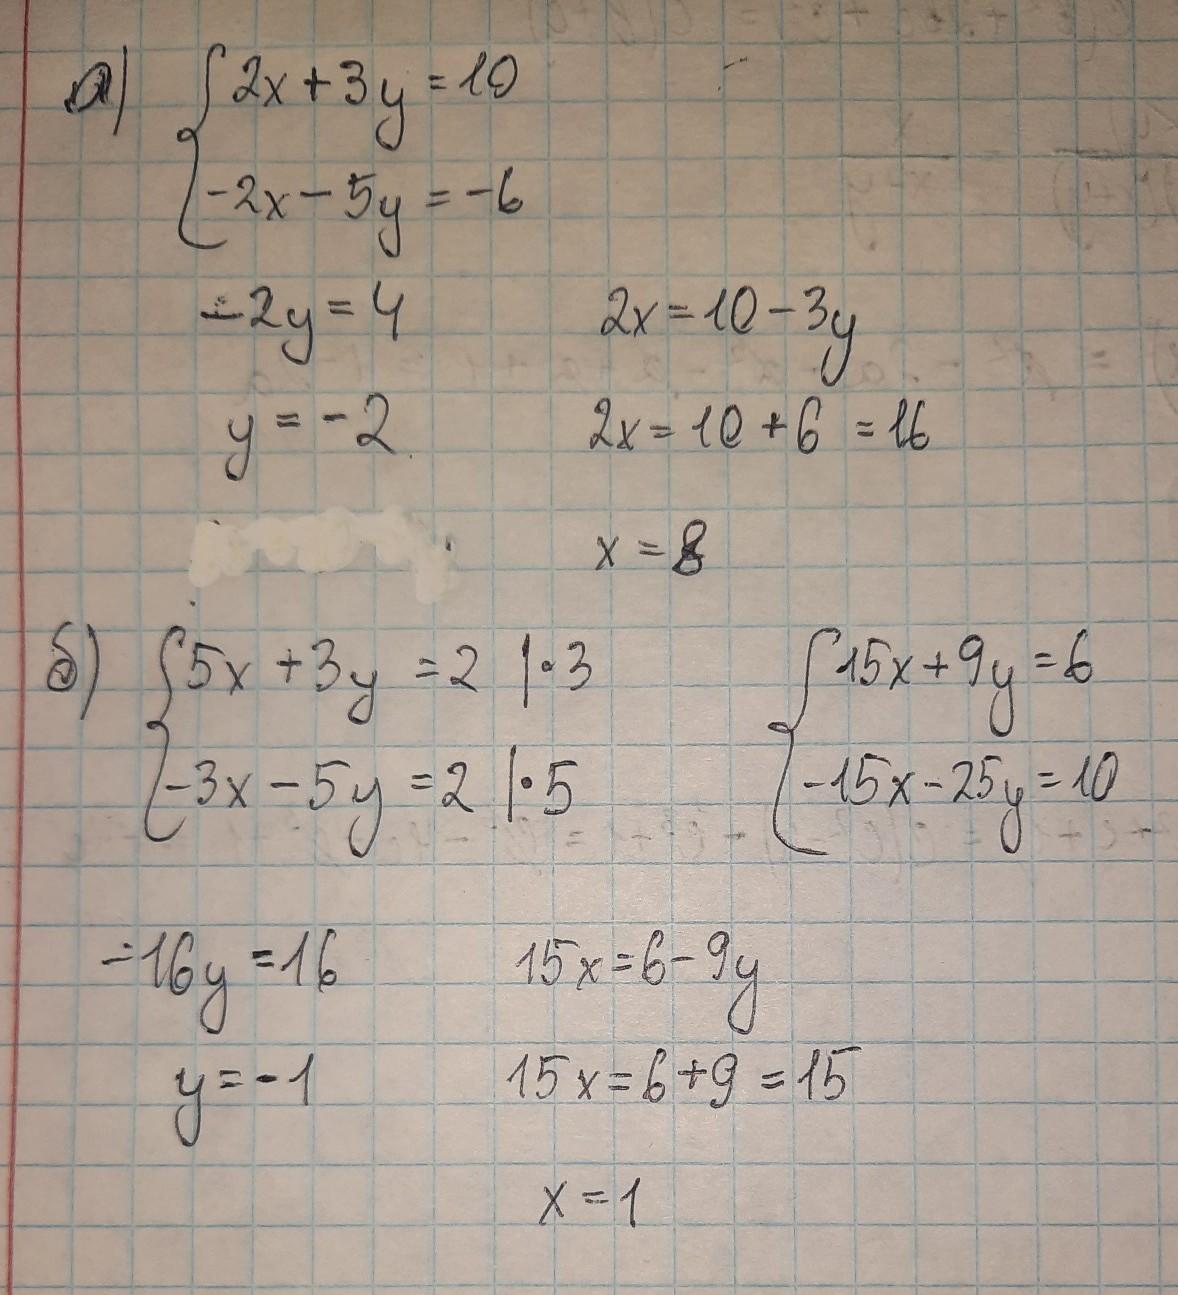 а) { 2x + 3y = 10
-2x - 5y = -6
-2y = 4
y = -2
2x = 10 - 3y
2x = 10 + 6 = 16
x = 8
б) { 5x + 3y = 2 | · 3
-3x - 5y = 2 | · 5
{ 15x + 9y = 6
-15x - 25y = 10
-16y = 16
y = -1
15x = 6 - 9y
15x = 6 + 9 = 15
x = 1